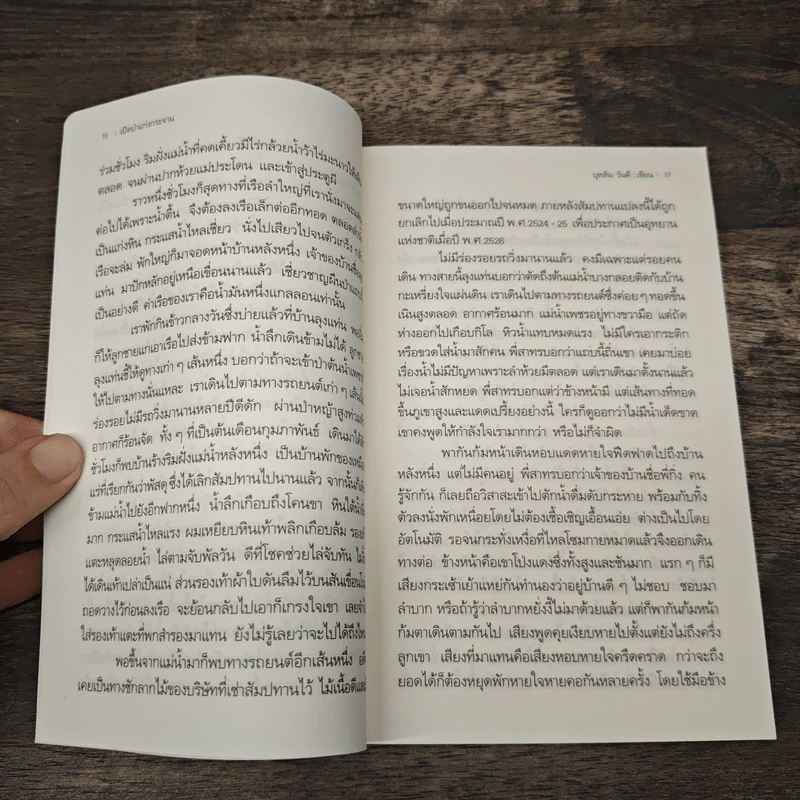 16 : เปิดป่าแก่งกระจาน
ร่วมชั่วโมง ริมฝั่งแม่น้ำที่คดเคี้ยวมีไร่กล้วยน้ำว้าไร่มะนาวให้เห็น
ตลอด จนผ่านปากห้วยแม่ประโดน และเข้าสู่ประตูผี
ราวหนึ่งชั่วโมงก็สุดทางที่เรือลำใหญ่ที่เรานั่งมาจะ
ต่อไปได้เพราะน้ำตื้น จึงต้องลงเรือเล็กต่ออีกทอด ตลอด
เป็นแก่งหิน กระแสน้ำไหลเชี่ยว นั่งไปเสียวไปจนตัวเกร็ง
เรือจะล่ม พักใหญ่ก็มาจอดหน้าบ้านหลังหนึ่ง เจ้าของบ้านชื่อลุง
แท่น มาปักหลักอยู่เหนือเขื่อนนานแล้ว เชี่ยวชาญผืนป่าแถบ
เป็นอย่างดี ค่าเรือของเราคือน้ำมันหนึ่งแกลลอนเท่านั้น
เราพักกินข้าวกลางวันซึ่งบ่ายแล้วที่บ้านลุงแท่น
ก็ให้ลูกชายแกเอาเรือไปส่งข้ามฟาก น้ำลึกเดินข้ามไม่ได้
ลุงแท่นชี้ให้ดูทางเก่า ๆ เส้นหนึ่ง บอกว่าถ้าจะเข้าป่าต้นน้ำเพชร
ให้ไปตามทางนั่นแหละ เราเดินไปตามทางรถยนต์เก่า ๆ เส้นนั้น
ร่องรอยไม่มีรถวิ่งมานานหลายปีดีดัก ผ่านป่าหญ้าสูงท่วม
อากาศก็ร้อนจัด ทั้ง ๆ ที่เป็นต้นเดือนกุมภาพันธ์ เดินมาได้
ชั่วโมงก็พบบ้านร้างริมฝั่งแม่น้ำหลังหนึ่ง เป็นบ้านพักของเหมือง
แร่ที่เรียกกันว่าพัสดุ ซึ่งได้เลิกสัมปทานไปนานแล้ว จากนั้น
ข้ามแม่น้ำไปยังอีกฟากหนึ่ง น้ำลึกเกือบถึงโคนขา หินใต้น้ำ
มาก กระแสน้ำไหลแรง ผมเหยียบหินเท้าพลิกเกือบล้ม
แตะหลุดลอยน้ำ ไล่ตามจับพัลวัน ดีที่โชคช่วยไล่จับทัน
ได้เดินเท้าเปล่าเป็นแน่ ส่วนรองเท้าผ้าใบดันลืมไว้บนสันเขื่อน
ถอดวางไว้ก่อนลงเรือ จะย้อนกลับไปเอาก็เกรงใจเขา เลย
ใส่รองเท้าแตะที่พกสำรองมาแทน ยังไม่รู้เลยว่าจะไปได้ถึงไหน
พอขึ้นจากแม่น้ำมาก็พบทางรถยนต์อีกเส้นหนึ่ง
เคยเป็นทางชักลากไม้ของบริษัทที่เช่าสัมปทานไว้ ไม้เนื้อดีและ
บุหลัน วันดี : เขียน : 17
ขนาดใหญ่ถูกขนออกไปจนหมด ภายหลังสัมปทานแปลงนี้ได้ถูก
ยกเลิกไปเมื่อประมาณปี พ.ศ.2524 - 25 เพื่อประกาศเป็นอุทยาน
แห่งชาติเมื่อปี พ.ศ.2526
ไม่มีร่องรอยรถวิ่งมานานแล้ว คงมีเฉพาะแต่รอยคน
เดิน ทางสายนี้ลุงแท่นบอกว่าตัดถึงต้นแม่น้ำบางกลอยติดกับบ้าน
กะเหรี่ยงใจแผ่นดิน เราเดินไปตามทางรถยนต์ซึ่งค่อย ๆ ทอดขึ้น
เนินสูงตลอด อากาศร้อนมาก แม่น้ำเพชรอยู่ทางขวามือ แต่ถัด
ห่างออกไปเกือบกิโล หิวน้ำแทบหมดแรง ไม่มีใครเอากระติก
หรือขวดใส่น้ำมาสักคน พี่สาทรบอกว่าแถบนี้ถิ่นแขา เคยมาบ่อย
เรื่องน้ำไม่มีปัญหาเพราะลำห้วยมีตลอด แต่เราเดินมาตั้งนานแล้ว
ไม่เจอน้ำสักหยด พี่สาทรบอกแต่ว่าข้างหน้ามี แต่เส้นทางที่ทอด
ขึ้นภูเขาสูงและแดดเปรี้ยงอย่างนี้ ใครก็ดูออกว่าไม่มีน้ำเด็ดขาด
เขาคงพูดให้กำลังใจเรามากกว่า หรือไม่ก็จำผิด
พากันก้มหน้าเดินหอบแดดหายใจฟืดฟาดไปถึงบ้าน
หลังหนึ่ง แต่ไม่มีคนอยู่ พี่สาทรบอกว่าเจ้าของบ้านชื่อพี่กิ่ง คน
รู้จักกัน ก็เลยถือวิสาสะเข้าไปตักน้ำดื่มดับกระหาย พร้อมกับทิ้ง
ตัวลงนั่งพักเหนื่อยโดยไม่ต้องเชื้อเชิญเอื้อนเอ่ย ต่างเป็นไปโดย
อัตโนมัติ รอจนกระทั่งเหงื่อที่ไหลโซมกายหมาดแล้วจึงออกเดิน
ทางต่อ ข้างหน้าคือเขาโป่งแดงซึ่งทั้งสูงและชันมาก แรก ๆ ก็มี
เสียงกระเซ้าเย้าแหย่กันทำนองว่าอยู่บ้านดี ๆ ไม่ชอบ ชอบมา
ลำบาก หรือถ้ารู้ว่าลำบากหยั่งงี้ไม่มาด้วยแล้ว แต่ก็พากันก้มหน้า
ก้มตาเดินตามกันไป เสียงพูดคุยเงียบหายไปตั้งแต่ยังไม่ถึงครึ่ง
ลูกเขา เสียงที่มาแทนคือเสียงหอบหายใจครืดคราด กว่าจะถึง
ยอดได้ก็ต้องหยุดพักหายใจหายคอกันหลายครั้ง โดยใช้มือข้าง